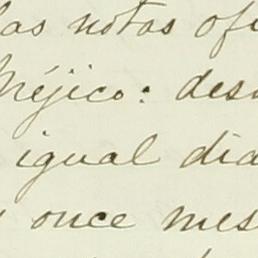 las notas ofi
Méjico: des
igual dia
y once mes